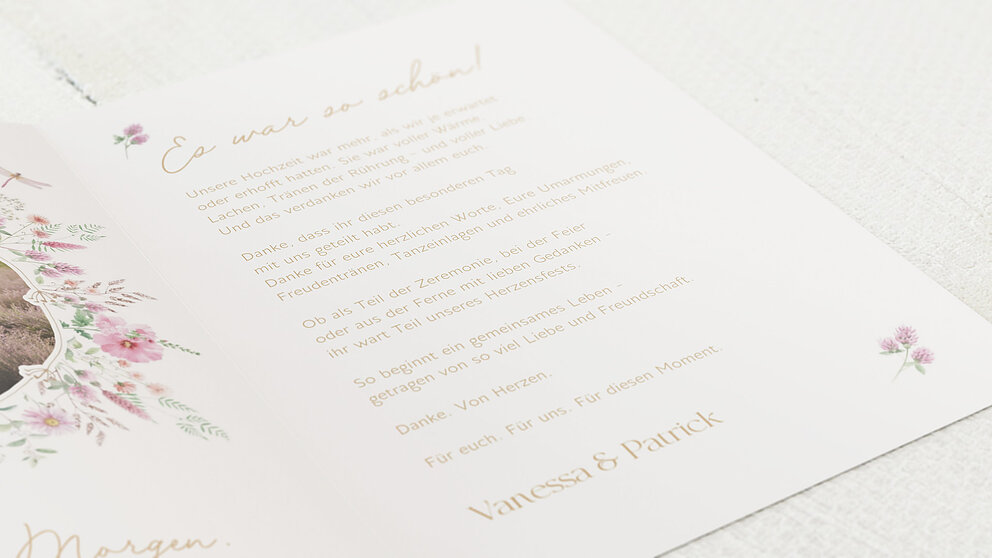 Es war so schön!
Unsere Hochzeit war mehr, als wir je erwartet
oder erhofft hatten. Sie war voller Wärme,
Lachen, Tränen der Rührung – und voller Liebe.
Und das verdanken wir vor allem euch.
Danke, dass ihr diesen besonderen Tag
mit uns geteilt habt.
Danke für eure herzlichen Worte, Eure Umarmungen,
Freudentränen, Tanzeinlagen und ehrliches Mitfreuen.
Ob als Teil der Zeremonie, bei der Feier
oder aus der Ferne mit lieben Gedanken –
ihr wart Teil unseres Herzensfests.
So beginnt ein gemeinsames Leben –
getragen von so viel Liebe und Freundschaft.
Danke. Von Herzen.
Für euch. Für uns. Für diesen Moment.
Vanessa & Patrick
Morgen.